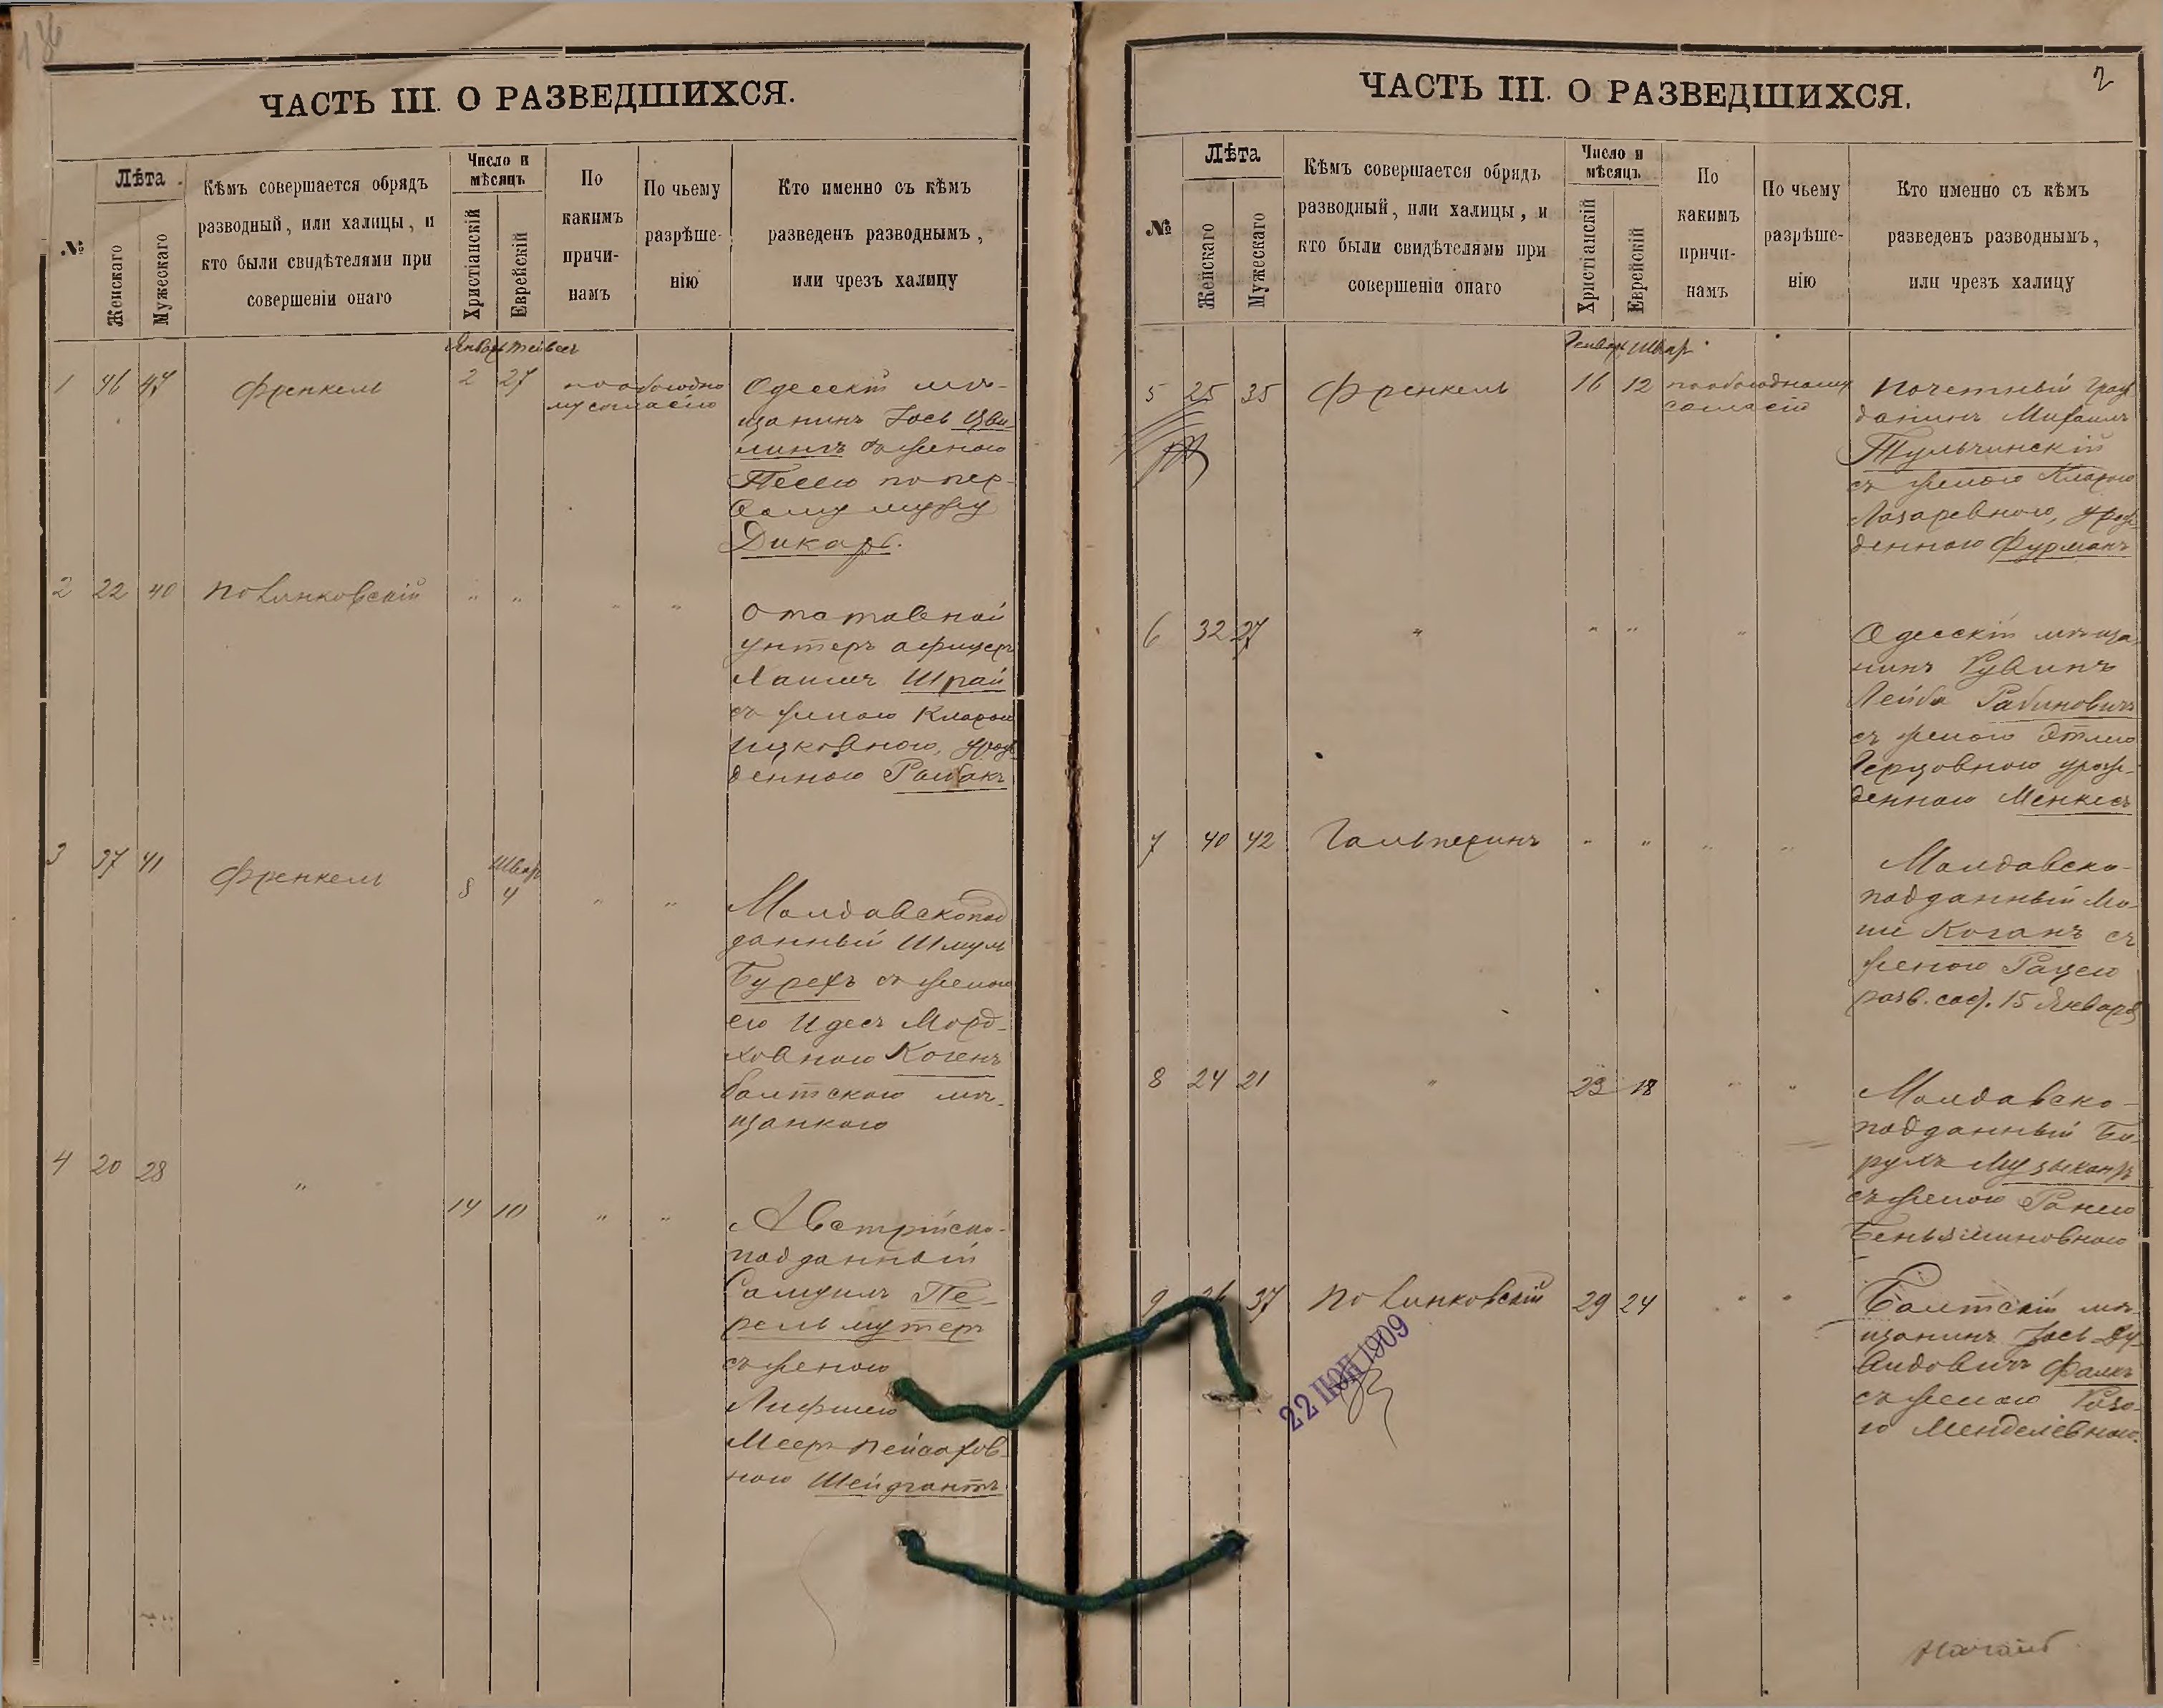 ЧАСТЬ III. О РАЗВЕДШИХСЯ.
№
Лѣта
Женскаго
Мужескаго
Кѣмъ совершается обрядъ
разводный, или халицы, и
кто были свидѣтелями при
совершеніи онаго
Число и
мѣсяцъ
Христіанскій
Еврейскій
По
какимъ
причи-
намъ
По чьему
разрѣше-
нію
Кто именно съ кѣмъ
разведенъ разводнымъ,
или чрезъ халицу
Январь Тейвес
1 46 47 Френкель 2 27 по обоюдно
му согласію
Одесскій мѣ-
щанинъ Іось Цви
лингъ съ женою
Песею по пер-
вому мужу
Дикарь.
2 22 40 Повинковскій " " " "
Отставной
унтеръ офицеръ
Хаимъ Шрай
съ женою Кларою
Ицковною, урож
денною Рамбакъ
3 37 41 Френкель 8 Шват 4 " "
Молдавскопод
данный Шмуль
Бурехъ съ женою
его Идесъ Морд-
ховною Когенъ
балтскою мѣ-
щанкою
4 20 28 " 14 10 " "
Австрійско-
подданный
Самуилъ Пе-
рельмутеръ
съ женою
Лифшею
Мееръ Пейсахов
ною Шейфантъ
ЧАСТЬ III. О РАЗВЕДШИХСЯ.
2
№
Лѣта
Женскаго
Мужескаго
Кѣмъ совершается обрядъ
разводный, или халицы, и
кто были свидѣтелями при
совершеніи онаго
Число и
мѣсяцъ
Христіанскій
Еврейскій
По
какимъ
причи-
намъ
По чьему
разрѣше-
нію
Кто именно съ кѣмъ
разведенъ разводнымъ,
или чрезъ халицу
Генварь Шват
5 25 35 Френкель 16 12 по обоюдному
согласію
Почетный граж
данинъ Михаилъ
Тульчинскій
съ женою Кларою
Лазаревною, урож
денною Фурманъ
6 32 27 " " " "
Одесскій мѣща
нинъ Рувинъ
Лейба Рабиновичъ
съ женою Этлею
Герцовною урож-
денною Менкесъ
7 40 42 Гальперинъ " " " "
Молдавско-
подданный Мо-
ше Коганъ съ
женою Рацею
разв. сост. 15 Января
8 24 21 " 23 18 " "
Молдавско-
подданный Бо-
рухъ Музыкантъ
съ женою Ранею
Беньяминовною
9 37 Повинковскій 29 24 " "
Балтскій мѣ-
щанинъ Іось Ду-
видовичъ Фалкъ
съ женою Розо-
ю Менделевною.
22 ІЮН 1909